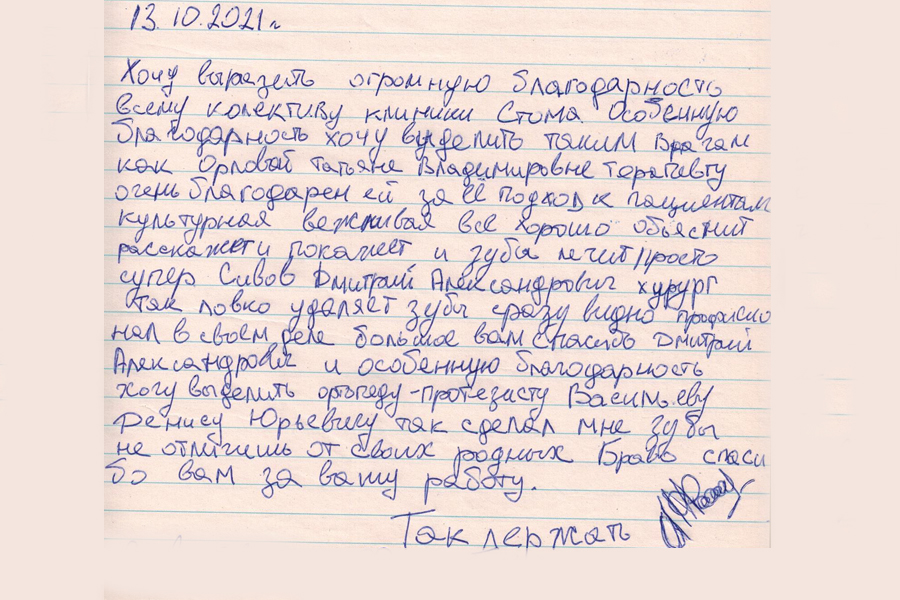 13.10.2021г
Хочу выразеть огромную благодарность
всему колективу клиники Стома Особенную
благодарность хочу выделить таким врагам
как Орловай Татьяне Владимировне терапевту
очень благодарен ей за её подход к пациентам
культурная вежливая все хорошо объяснит
расскажет и покажет и зубы лечит просто
супер Сивов Дмитрий Александрович хурург
так ловко удаляет зубы сразу видно професио
нал в своем деле большое вам спасибо Дмитрий
Александрович и особенную благодарность
хочу выделить ортопеду-протезисту Васильеву
Денису Юрьевичу так сделал мне зубы
не отличишь от своих родных Браво спаси
бо вам за вашу работу.
Так держать